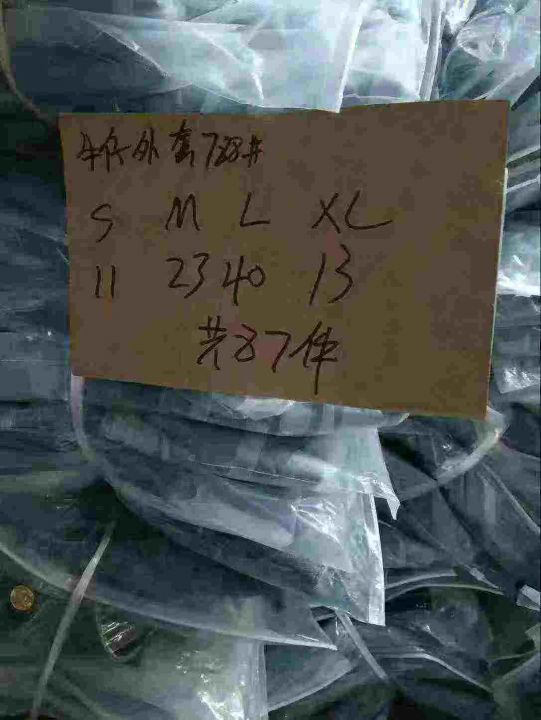 牛仔外套728#
S M L XL
11 23 40 13
共87件